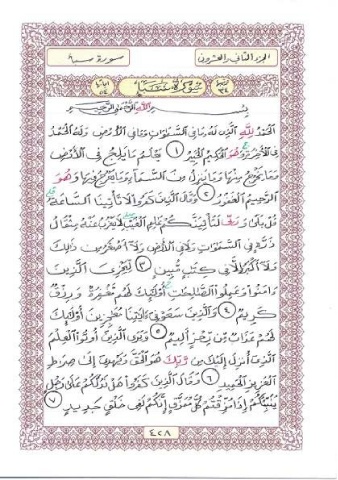 الجزء الثاني والعشرون سورة سبأ
٣٤ سُورَةُ سَبَإٍ ٥٤
بِسْمِ اللَّهِ الرَّحْمَٰنِ الرَّحِيمِ
الْحَمْدُ لِلَّهِ الَّذِي لَهُ مَا فِي السَّمَٰوَٰتِ وَمَا فِي الْأَرْضِ وَلَهُ الْحَمْدُ
فِي الْآخِرَةِ وَهُوَ الْحَكِيمُ الْخَبِيرُ ١ يَعْلَمُ مَا يَلِجُ فِي الْأَرْضِ
وَمَا يَخْرُجُ مِنْهَا وَمَا يَنزِلُ مِنَ السَّمَاءِ وَمَا يَعْرُجُ فِيهَا وَهُوَ
الرَّحِيمُ الْغَفُورُ ٢ وَقَالَ الَّذِينَ كَفَرُوا لَا تَأْتِينَا السَّاعَةُ
قُلْ بَلَىٰ وَرَبِّي لَتَأْتِيَنَّكُمْ عَٰلِمِ الْغَيْبِ لَا يَعْزُبُ عَنْهُ مِثْقَالُ
ذَرَّةٍ فِي السَّمَٰوَٰتِ وَلَا فِي الْأَرْضِ وَلَا أَصْغَرُ مِن ذَٰلِكَ
وَلَا أَكْبَرُ إِلَّا فِي كِتَٰبٍ مُّبِينٍ ٣ لِّيَجْزِيَ الَّذِينَ
ءَامَنُوا وَعَمِلُوا الصَّٰلِحَٰتِ أُولَٰئِكَ لَهُم مَّغْفِرَةٌ وَرِزْقٌ
كَرِيمٌ ٤ وَالَّذِينَ سَعَوْ فِي ءَايَٰتِنَا مُعَٰجِزِينَ أُولَٰئِكَ
لَهُمْ عَذَابٌ مِّن رِّجْزٍ أَلِيمٌ ٥ وَيَرَى الَّذِينَ أُوتُوا الْعِلْمَ
الَّذِي أُنزِلَ إِلَيْكَ مِن رَّبِّكَ هُوَ الْحَقَّ وَيَهْدِي إِلَىٰ صِرَٰطِ
الْعَزِيزِ الْحَمِيدِ ٦ وَقَالَ الَّذِينَ كَفَرُوا هَلْ نَدُلُّكُمْ عَلَىٰ رَجُلٍ
يُنَبِّئُكُمْ إِذَا مُزِّقْتُمْ كُلَّ مُمَزَّقٍ إِنَّكُمْ لَفِي خَلْقٍ جَدِيدٍ ٧
٤٢٨